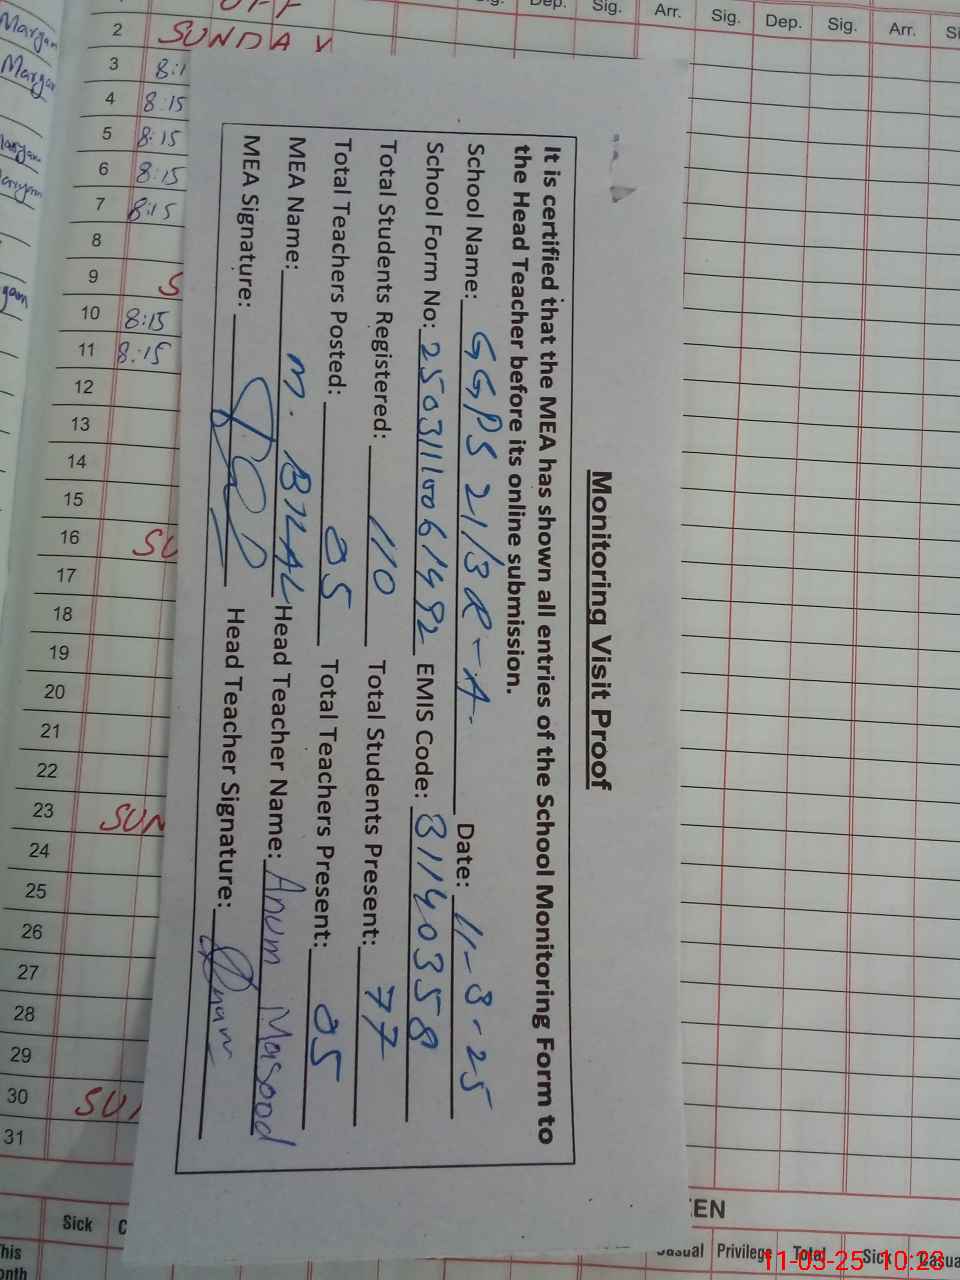 Monitoring Visit Proof
It is certified that the MEA has shown all entries of the School Monitoring Form to
the Head Teacher before its online submission.
School Name: GGPS 21/3R-A. Date: 11-3-25
School Form No: 2503110061492 EMIS Code: 31140358
Total Students Registered: 110 Total Students Present: 77
Total Teachers Posted: 05 Total Teachers Present: 05
MEA Name: M. BILAL Head Teacher Name: Anum Masood
MEA Signature: Head Teacher Signature: Anum
Dep. Sig. Arr. Sig. Dep. Sig. Arr.
2 SUNDAY
3 8:1
4 8:15
5 8:15
6 8:15
7 8:15
8
9 S
10 8:15
11 8:15
12
13
14
15
16 SU
17
18
19
20
21
22
23 SUN
24
25
26
27
28
29
30 SU
31
Maryam
Maryam
Sick C
Privilege Total Sick Casua
11-03-25 10:23